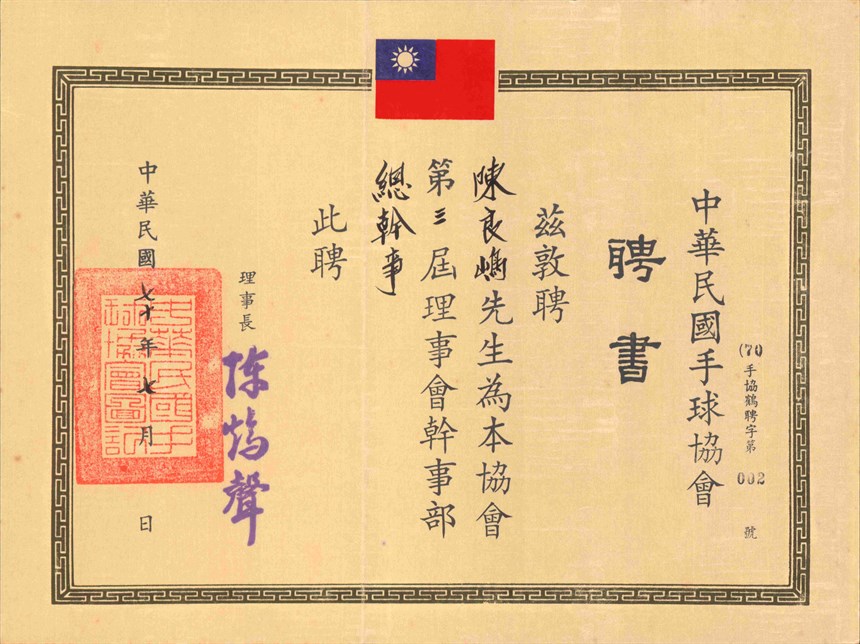 (70)手協鶴聘字第002號
中華民國手球協會
聘書
茲敦聘
陳良嶋先生為本協會
第三屆理事會幹事部
總幹事
此聘
理事長 陳鶴聲
中華民國七十年七月 日
中華民國手
球協會圖記